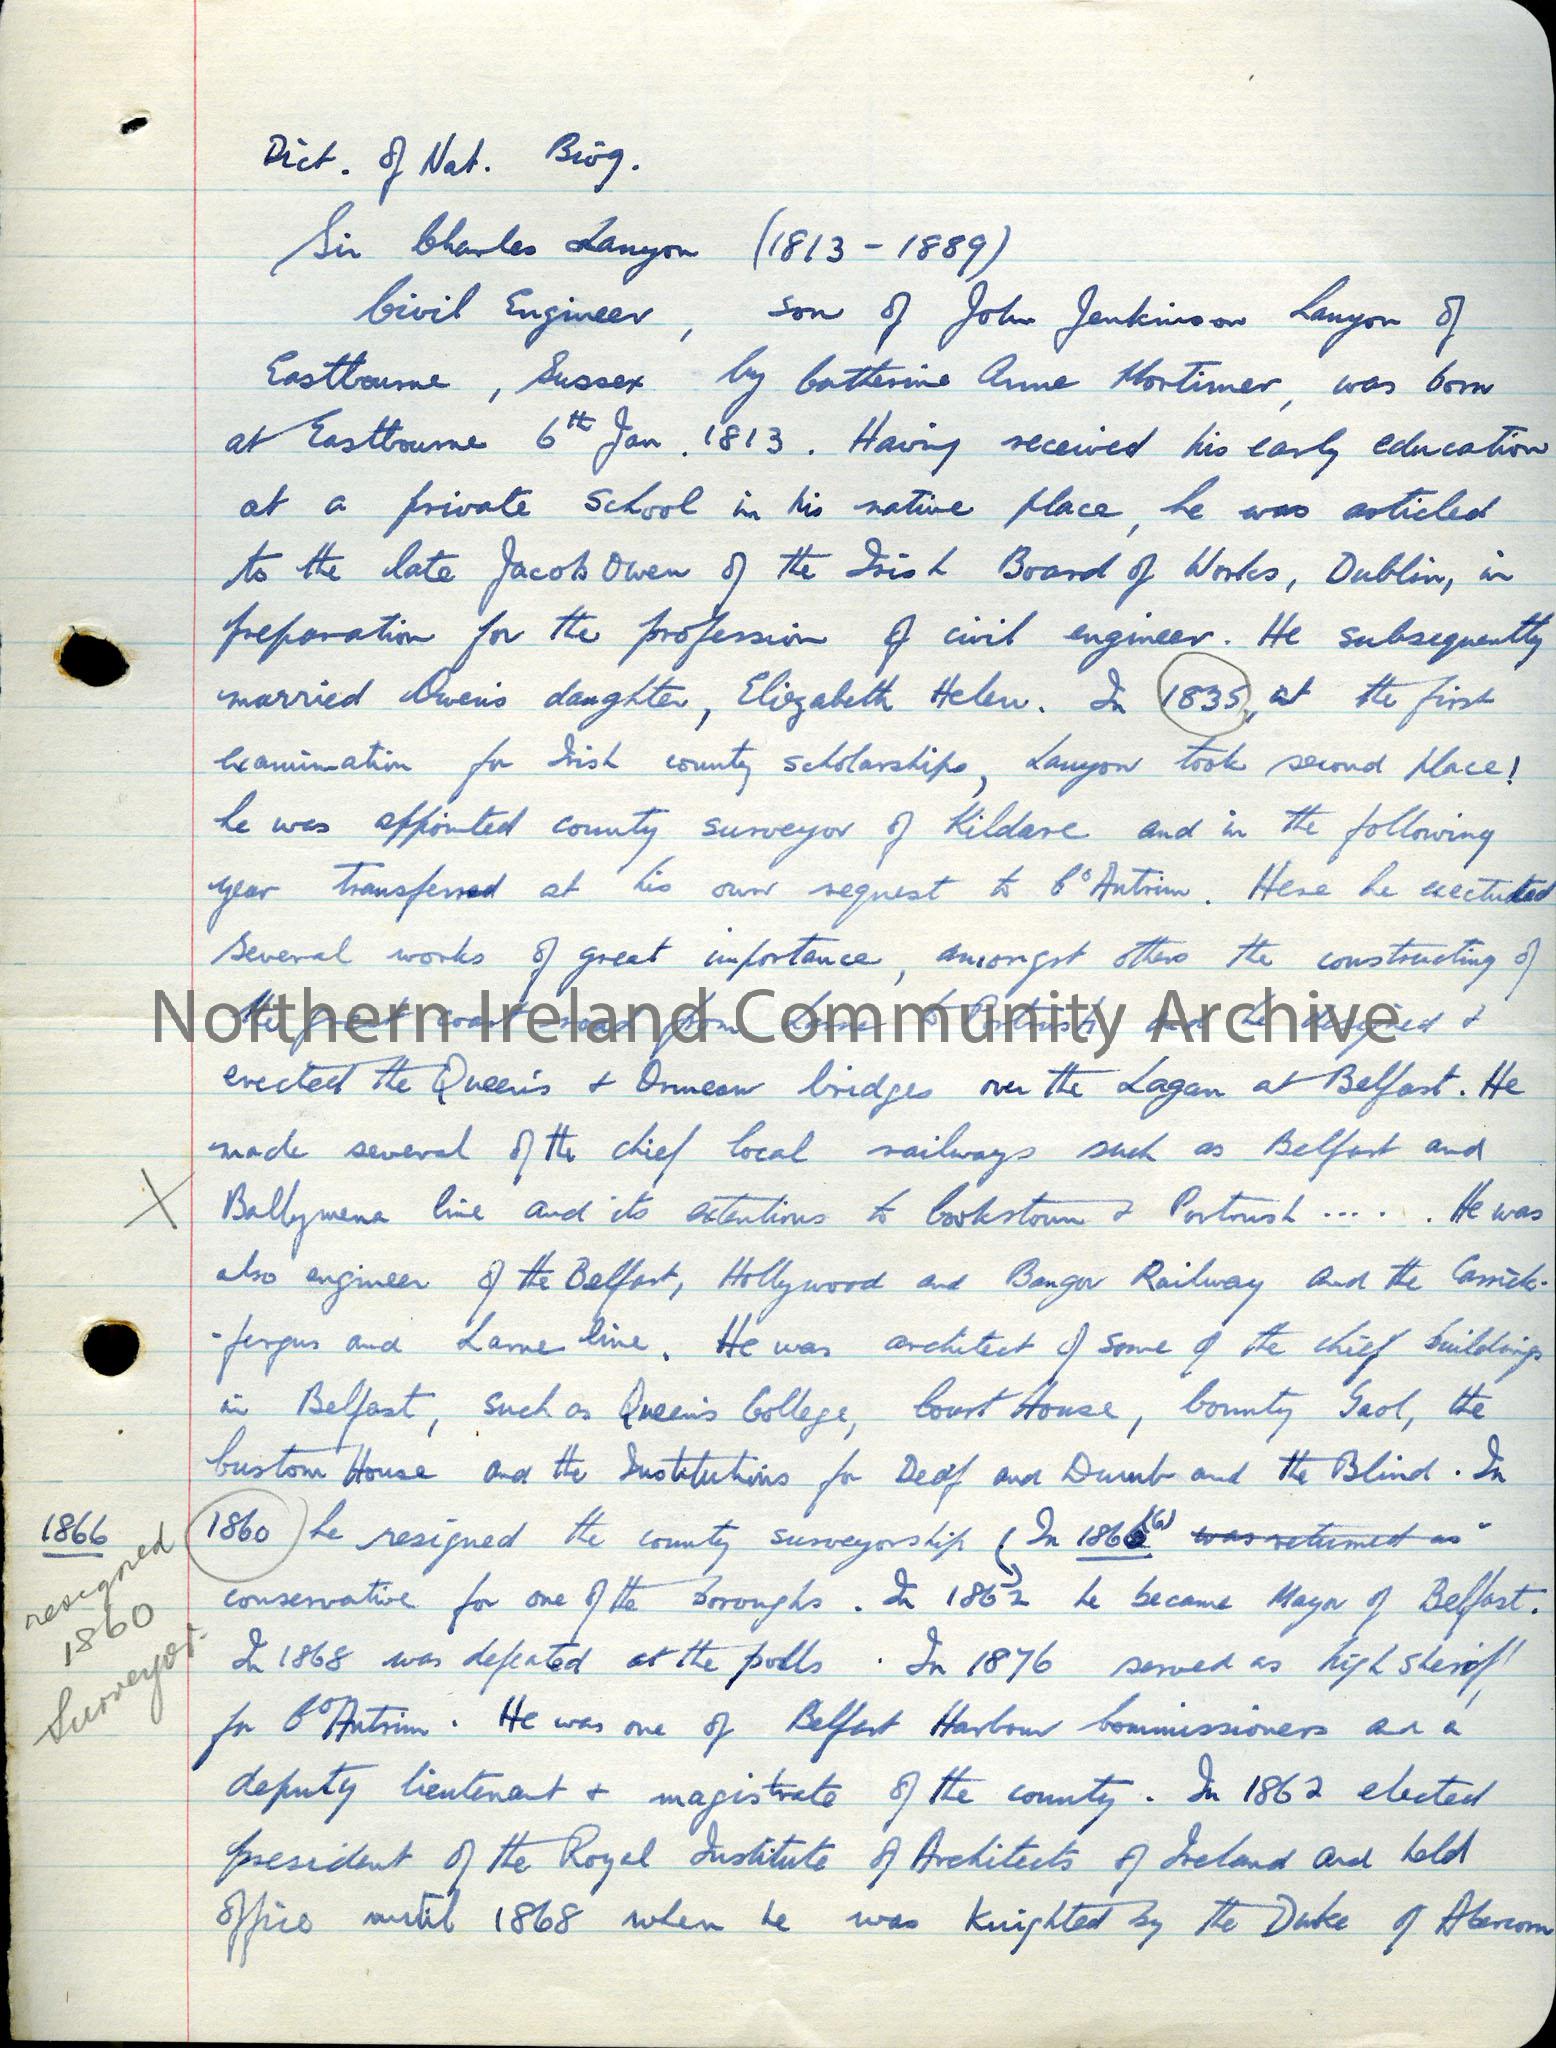 Dict. of Nat. Biog.
Sir Charles Lanyon (1813 - 1889)
Civil Engineer, son of John Jenkinson Lanyon of
Eastbourne, Sussex by Catherine Anne Mortimer, was born
at Eastbourne 6th Jan. 1813. Having received his early education
at a private school in his native place, he was articled
to the late Jacob Owen of the Irish Board of Works, Dublin, in
preparation for the profession of civil engineer. He subsequently
married Owen's daughter, Elizabeth Helen. In 1835, at the first
examination for Irish county scholarships, Lanyon took second place!
he was appointed county surveyor of Kildare and in the following
year transferred at his own request to Co Antrim. Here he exectuted
several works of great importance, amongst others the constructing of
the great coast road from Larne to Portrush and he designed &
Northern Ireland Community Archive
erected the Queen's & Ormeau bridges over the Lagan at Belfast. He
made several of the chief local railways such as Belfast and
X Ballymena line and its extentions to Cookstown & Portrush ..... He was
also engineer of the Belfast, Hollywood and Bangor Railway and the Carrick-
-fergus and Larne line. He was architect of some of the chief buildings
in Belfast, such as Queen's College, Court House, County Gaol, the
Custom House and the Institutions for Deaf and Dumb and the Blind. In
1866 1860 he resigned the county surveyorship (In 1866 (6) was returned as
resigned 1860 Surveyor.
conservative for one of the boroughs. In 1862 he became Mayor of Belfast.
In 1868 was defeated at the polls. In 1876 served as high sheriff
for Co Antrim. He was one of Belfast Harbour Commissioners and a
deputy lieutenant & magistrate of the county. In 1862 elected
president of the Royal Institute of Architects of Ireland and held
office until 1868 when he was Knighted by the Duke of Abercorn